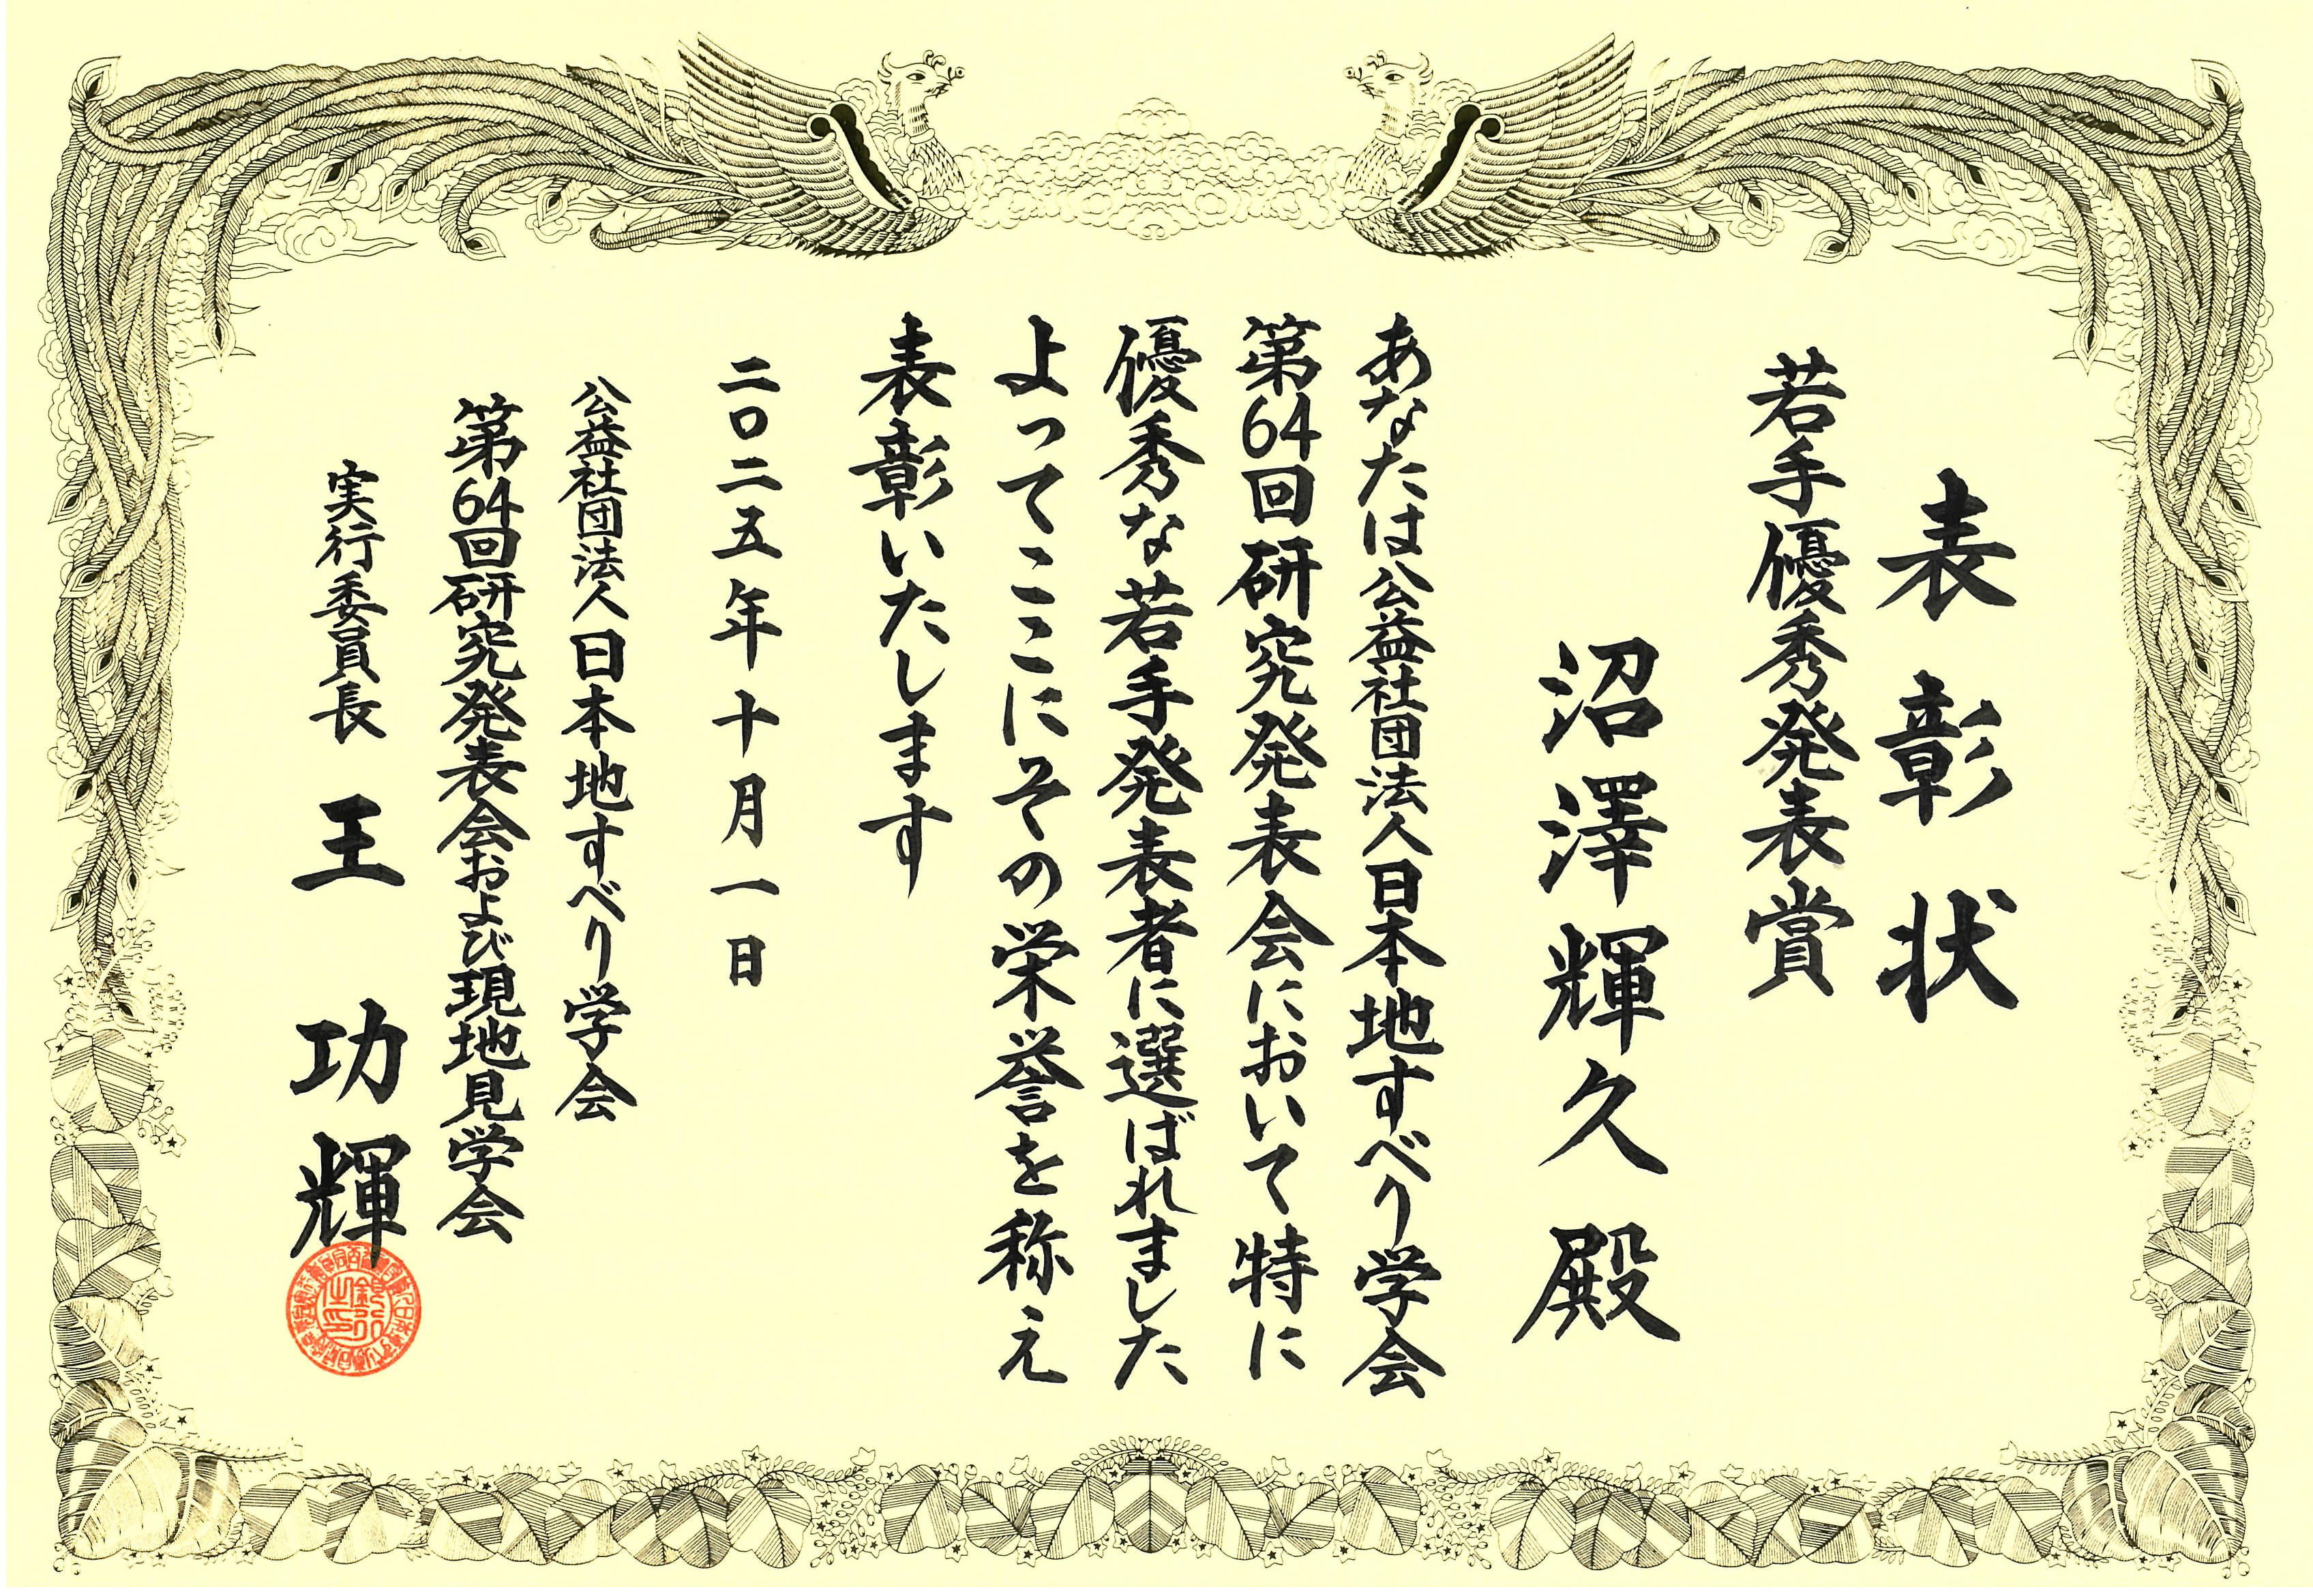 表彰状
若手優秀発表賞
沼澤輝久殿
あなたは公益社団法人日本地すべり学会
第64回研究発表会において特に
優秀な若手発表者に選ばれました
よってここにその栄誉を称え
表彰いたします
二〇二五年十月一日
公益社団法人日本地すべり学会
第64回研究発表会および現地見学会
実行委員長 王 功輝